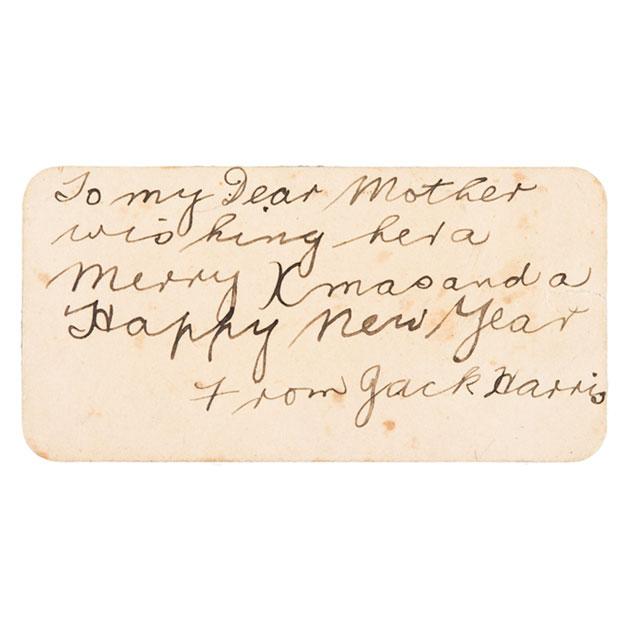 To my Dear Mother
wishing her a
Merry Xmas and a
Happy New Year
From Jack Harris